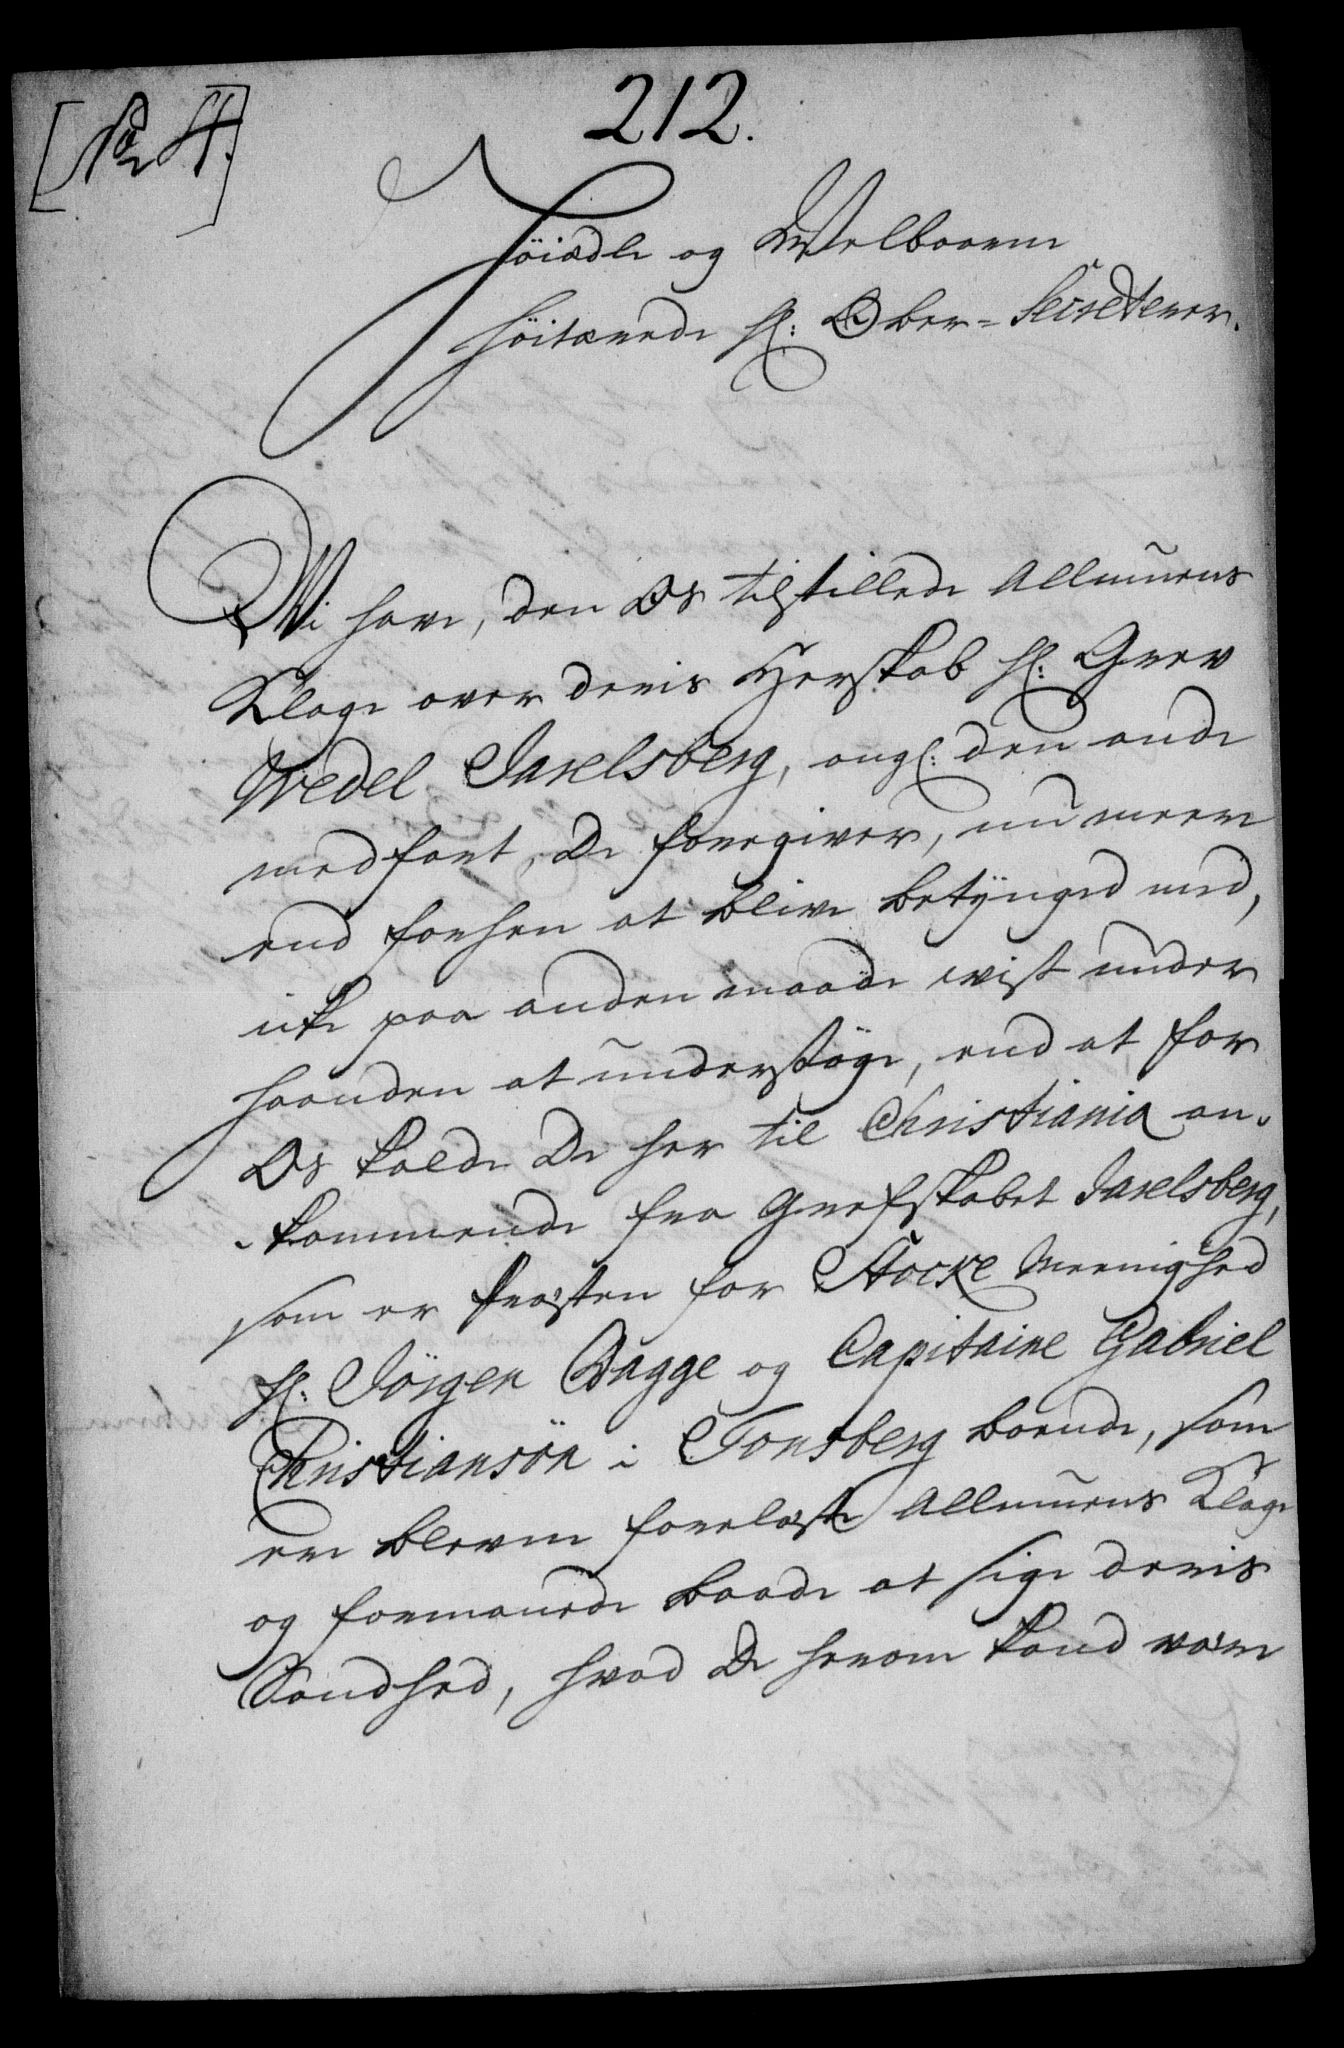 212.
[No 4.]
Høiædle og Welbaarne
Høitærede Hl: Ober-Secreterer.
Wi have, den Os tilstillede Allmuens
Klage over deris Herskab Hl: Grev
Wedel Jarelsberg, angl: den onde
medfart, De foregiver, nu meere
end forhen at blive betÿnged med,
ike paa anden maade vist under
haanden at undersøge, end at for
Os kalde De her til Christiania an-
kommende fra Grefskabet Jarelsberg,
som er Præsten for Stocke Meenighed
Hl: Jörgen Bagge og Capitaine Gabriel
Christiansön i Tonsberg boende, som
ere blevne forelæste Allmuens Klage
og formanede baade at sige deris
Sandhed, hvad De herom kand være